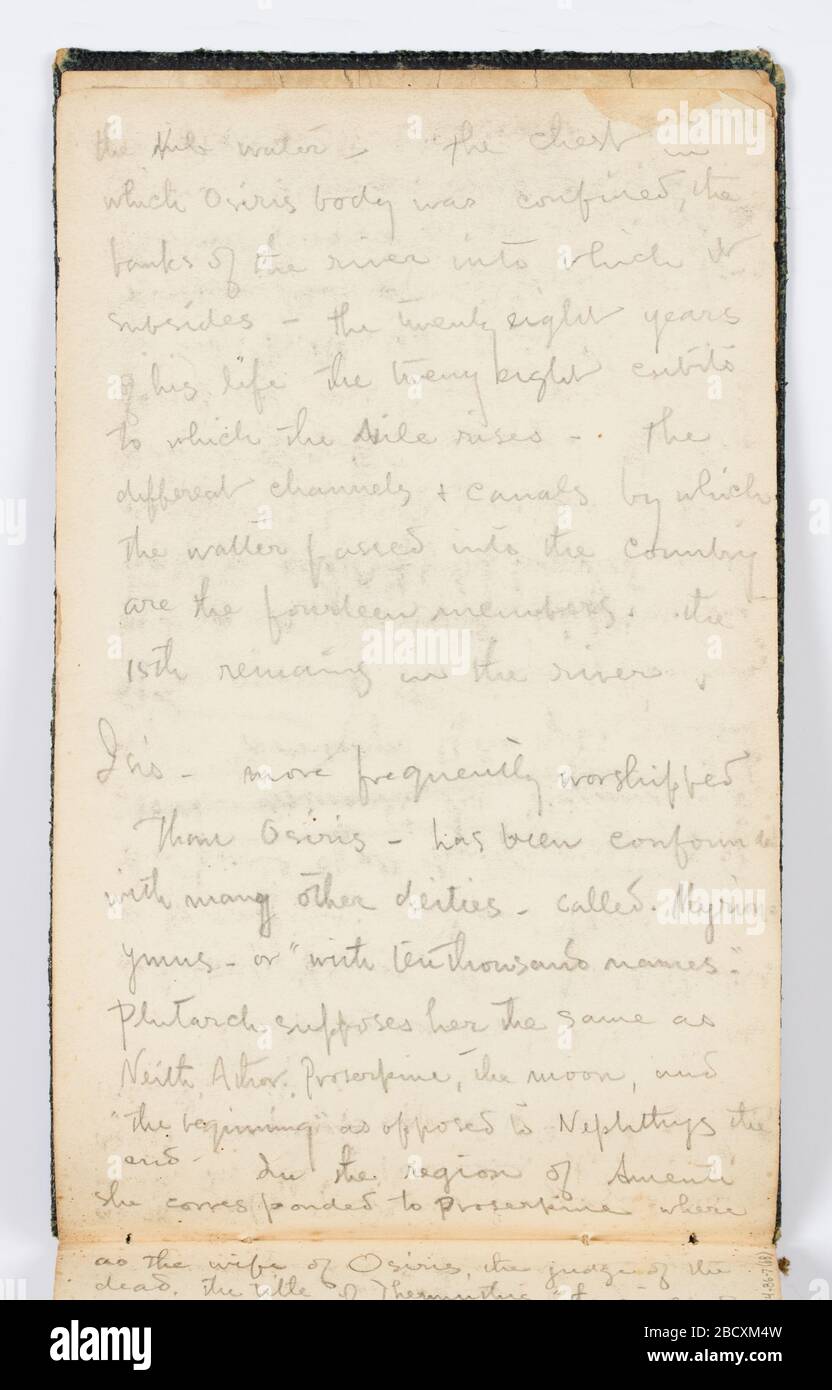 the Nile water - "the chest in
which Osiris body was confined, the
banks of the river into which it
subsides - the twenty eight years
of his life the tweny eight cubits
to which the Nile rises - . The
different channels & canals by which
the watter passed into the country
are the fourteen members. the
15th remaing in the river.
Isis - more frequently worshipped
Than Osiris - has been confoun
with many other deities - called. Myrion-
ymus - or "with ten thousand names."
Plutarch supposes her the same as
Neith, Athor, Proserpine, the moon, and
"the beginning" as opposed to Nephthys the
end - In the region of Amenti
she corresponded to Proserpine where
as the wife of Osiris, the judge of the
dead. the title of Thermuthis
alamy
Image ID: 2BCXM4W
www.alamy.com